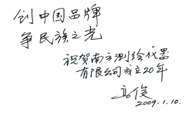 创中国品牌
争民族之光
祝贺南方测绘仪器
有限公司成立20年
2009.1.10.